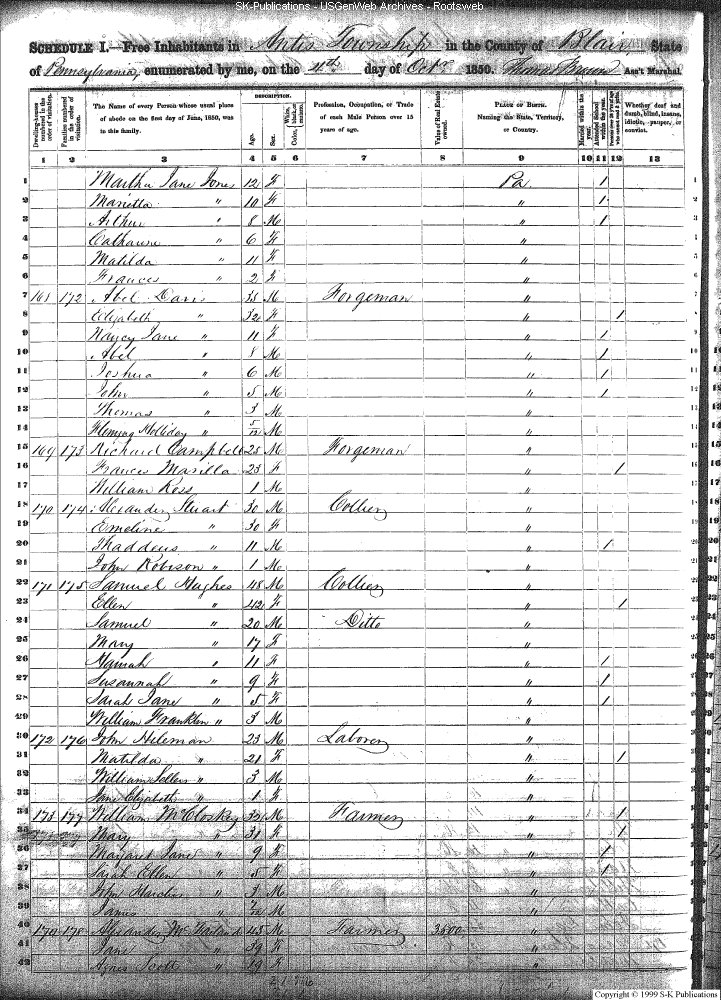 SK-Publications - USGenWeb Archives - Rootsweb
SCHEDULE I.—Free Inhabitants in Antis Township in the County of Blair State
of Pennsylvania, enumerated by me, on the 4th day of Octr 1850. Ass't Marshal.
Dwelling-houses numbered in the order of visitation. Families numbered in the order of visitation. The Name of every Person whose usual place of abode on the first day of June, 1850, was in this family. DESCRIPTION. Age. Sex. White, black, or mulatto. Color, Profession, Occupation, or Trade of each Male Person over 15 years of age. Value of Real Estate owned. PLACE OF BIRTH. Naming the State, Territory, or Country. Married within the year. Attended School within the year. Whether deaf and dumb, blind, insane, idiotic, pauper, or convict.
1 2 3 4 5 6 7 8 9 10 11 12 13
1 Martha Jane Jones 12 F Pa / 1
2 Marietta " 10 F " / 2
3 Arthur " 8 M " / 3
4 Catharine " 6 F " 4
5 Matilda " F " 5
6 Frances " 2 F " 6
7 172 Abel Davis 35 M Forgeman " 7
8 Elizabeth " 32 F " / 8
9 Nancy Jane " 11 F " / 9
10 Abel " 8 M " / 10
11 Joshua " 6 M " / 11
12 John " 5 M " / 12
13 Thomas " 3 M "
14 Fleming Holliday " 5/12 M "
15 169 173 Richard Campbell 25 M Forgeman "
16 Frances Marilla 23 F " /
17 William Ross 1 M "
18 170 174 Alexander Stuart 30 M Collier "
19 Emeline " 30 F "
20 Thaddeus " 11 M " /
21 John Robison " 1 M "
22 171 175 Samuel Hughes 48 M Collier "
23 Ellen " 42 F " /
24 Samuel " 20 M Ditto "
25 Mary " 17 F "
26 Hannah " 11 F " /
27 Susannah " 9 F " /
28 Sarah Jane " 5 F " /
29 William Franklin " 3 M "
30 172 176 John Hileman 23 M Laborer "
31 Matilda " 21 F " /
32 William Sellers " 3 M "
33 Jane Elizabeth " 1 F "
34 173 177 William McCloskey 32 M Farmer " /
35 Mary " 31 F " /
36 Margaret Jane " 9 F " /
37 Sarah Ellen " 5 F " /
38 John " 3 M "
39 James " M "
40 178 Alexander McFarland 45 M Farmer 3500 "
41 Jane " 39 F "
42 Agnes Scott " F "
Copyright © 1999 S-K Publications